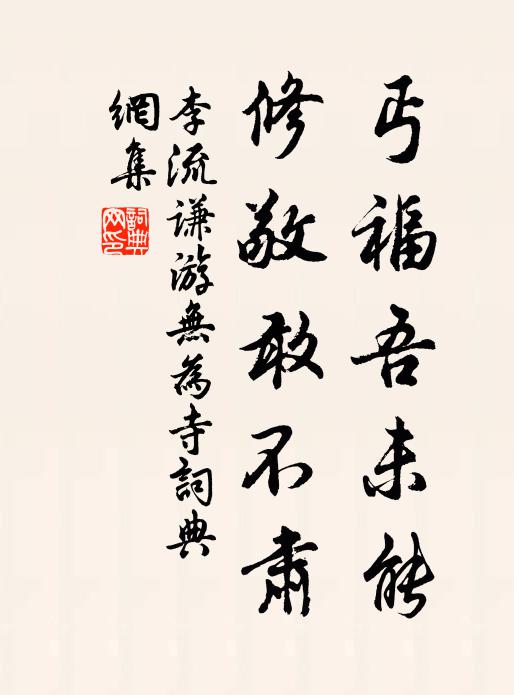 丐福吾未能
修敬敢不肅
李流谦游無為寺詞典
網集
詞典
网印